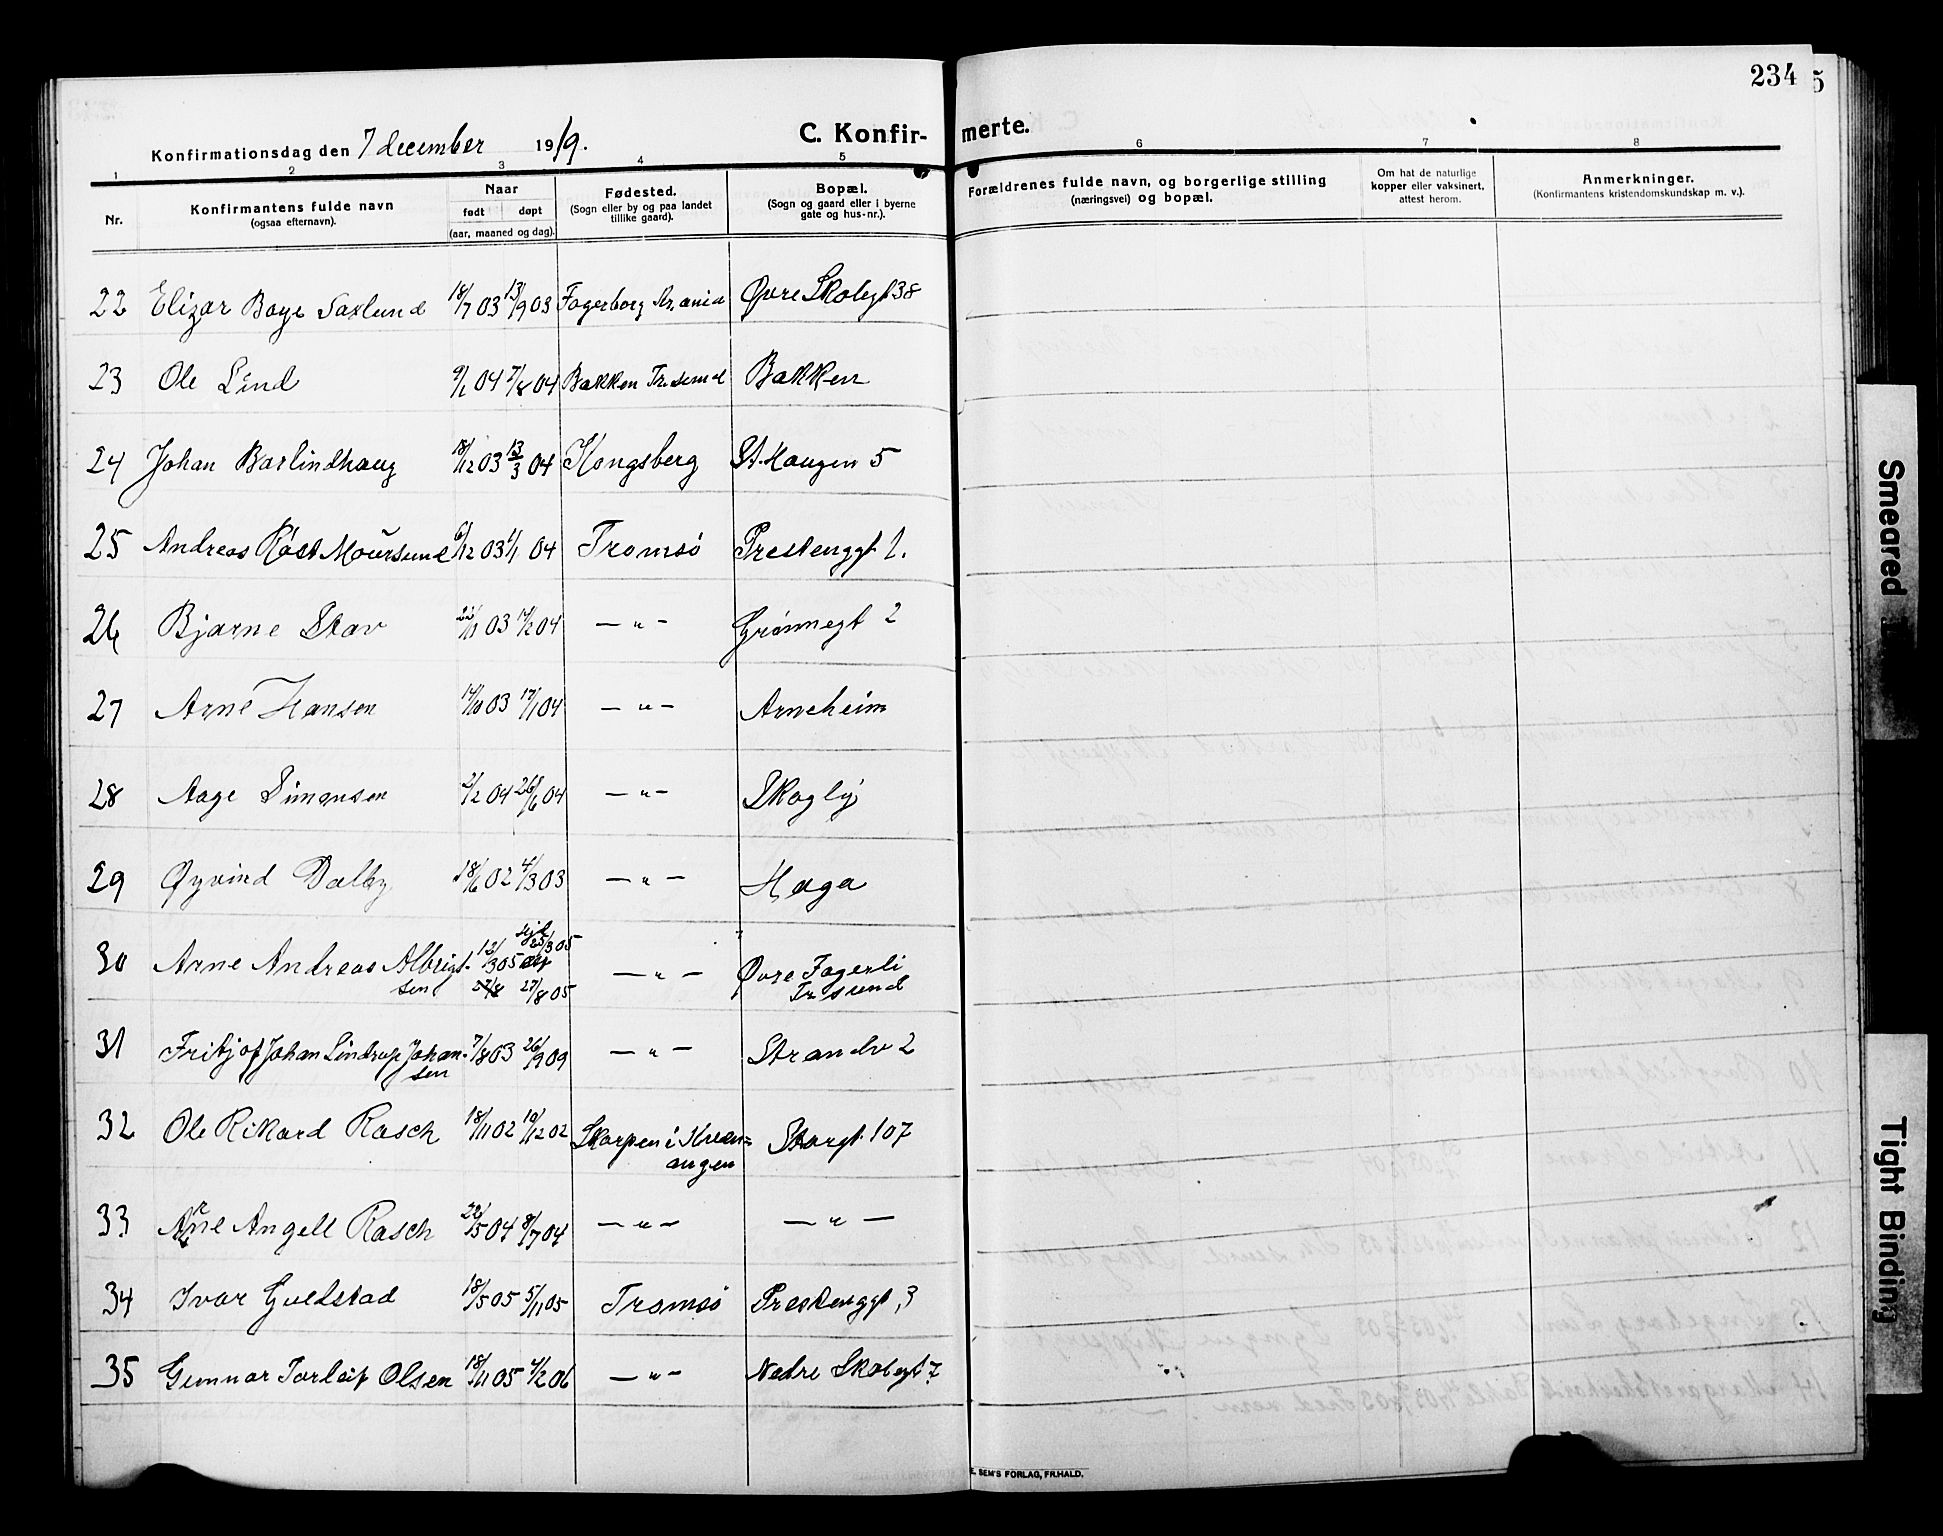 234
5
C. Konfir-
merte.
Konfirmationsdag den 7 december 1919.
1 2 3 4 5 6 7 8
Nr.
Konfirmantens fulde navn
(ogsaa efternavn).
Naar
født døpt
(aar, maaned og dag).
Fødested.
(Sogn eller by og paa landet
tillike gaard).
Bopæl.
(Sogn og gaard eller i byerne
gate og hus-nr.).
Forældrenes fulde navn, og borgerlige stilling
(næringsvei) og bopæl.
Om hat de naturlige
kopper eller vaksinert,
attest herom.
Anmerkninger.
(Konfirmantens kristendomskundskap m. v.).
22 Elizar Boye Saxlund 18/7 03 13/9 03 Fagerborg Kr.ania Øvre Skolegt 38
23 Ole Lind 9/1 04 7/8 04 Bakken Tr.sund Bakken
24 Johan Barlindhaug 18/12 03 13/3 04 Kongsberg St.Haugen 5
25 Andreas Røst Moursund 6/12 03 1/1 04 Tromsø Prestenggt 1.
26 Bjarne Skav 22/11 03 14/2 04 — " — Grønnegt 2
27 Arne Hansen 14/10 03 17/1 04 — " — Arneheim
28 Aage Simonsen 2/2 04 26/6 04 — " — Skogly
29 Øyvind Dalby 18/6 02 4/3 03 — " — Haga
30 Arne Andreas Albrigt- 12/3 05 25/3 05 — " — Øvre Fagerli
sen 27/8 27/8 05 Tr sund
31 Fritjof Johan Lindrup Johan- 7/8 03 26/9 09 — " — Strandv 2
sen
32 Ole Rikard Rasch 18/11 02 19/12 02 Skorpen i Kvæn= Storgt. 107
angen
33 Arne Angell Rasch 22/5 04 8/7 04 — " — — " —
34 Ivar Guldstad 18/5 05 5/11 05 Tromsø Prestenggt, 3
35 Gunnar Torleif Olsen 18/11 05 4/2 06 — " — Nedre Skolegt 7
E. SEM'S FORLAG, FR.HALD.
Smeared
Tight Binding